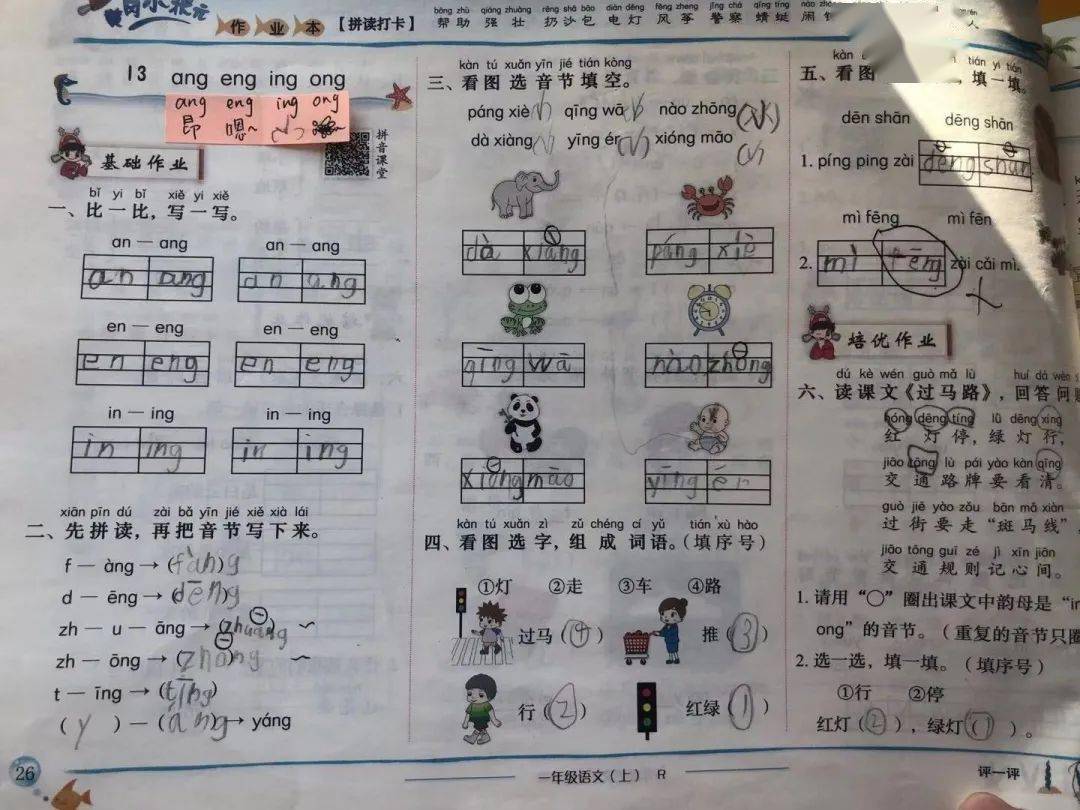 作业本
【拼读打卡】
bāng zhù qiáng zhuàng rēng shā bāo diàn dēng fēng zheng jǐng chá qīng tíng
帮助 强壮 扔沙包 电灯 风筝 警察 蜻蜓 闹
13 ang eng ing ong
ang eng ing ong
昂 嗯~
拼音课堂
基础作业
bǐ yi bǐ xiě yi xiě
一、比一比，写一写。
an — ang an — ang
an ang an ang
en — eng en — eng
en eng en eng
in — ing in — ing
in ing in ing
xiān pīn dú zài bǎ yīn jié xiě xià lái
二、先拼读，再把音节写下来。
f — àng → (fàng)
d — ēng → (dēng)
zh — u — āng → (zhuāng)
zh — ōng → (zhōng)
t — īng → (tīng)
( y ) — (áng) → yáng
kàn tú xuǎn yīn jié tián kòng
三、看图选音节填空。
páng xiè qīng wā nào zhōng
dà xiàng yīng ér xióng māo
dà xiàng páng xiè
qīng wā nào zhōng
xióng māo yīng ér
kàn tú xuǎn zì zǔ chéng cí yǔ tián xù hào
四、看图选字，组成词语。（填序号）
①灯 ②走 ③车 ④路
过马（④） 推（③）
行（②） 红绿（①）
五、看图 ，填一填。
dēn shān dēng shān
1. píng ping zài dēng shān
mì fēng mì fēn
2. mì fēng zài cǎi mì.
培优作业
dú kè wén guò mǎ lù huí dá wèn
六、读课文《过马路》，回答问
hóng dēng tíng lǜ dēng xíng
红灯停，绿灯行，
jiāo tōng lù pái yào kàn qīng
交通路牌要看清。
guò jiē yào zǒu bān mǎ xiàn
过街要走“斑马线”
jiāo tōng guī zé jì xīn jiān
交通规则记心间。
1. 请用“○”圈出课文中韵母是“in
ong”的音节。（重复的音节只圈
2. 选一选，填一填。（填序号）
①行 ②停
红灯（②），绿灯（①）。
26
一年级语文（上） R
评一评